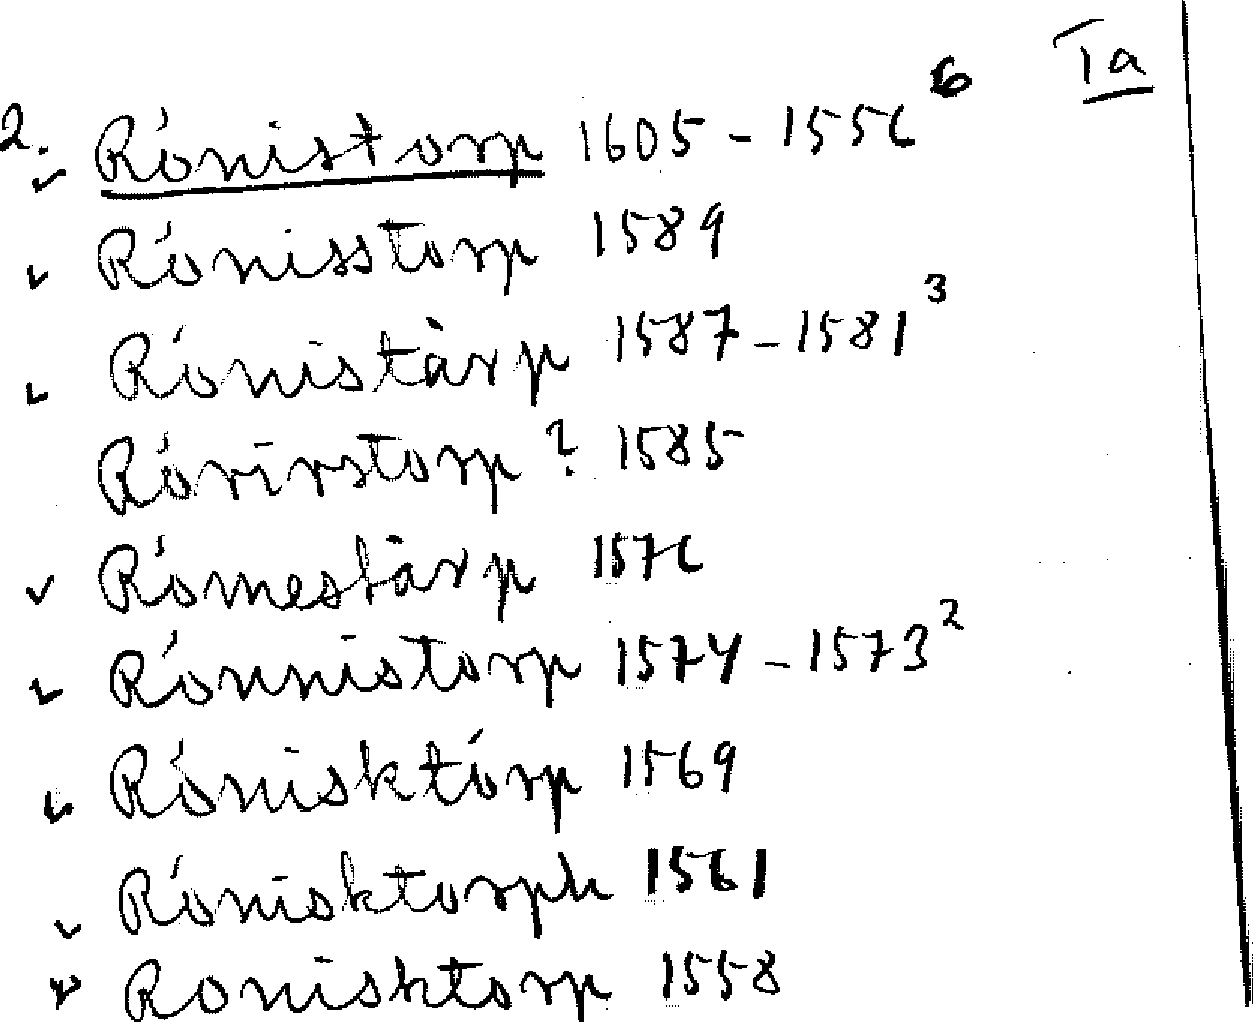 Ia
2. Rónistorp 1605 - 1556 6
Rónisstorp 1589
Rónistàrp 1587 - 1581 3
Rórirstorp ? 1585
Rómestàrp 1576
Rónnistorp 1574 - 1573 2
Rónisktórp 1569
Rónisktorph 1561
Ronisktorp 1558